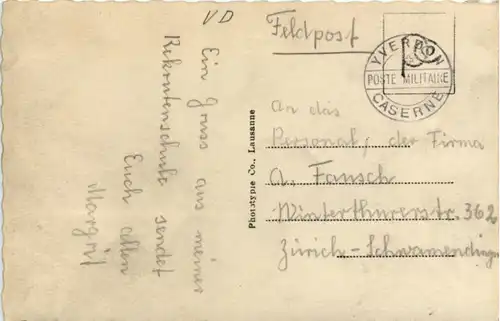 VD
Ein Gruss aus meiner
Rekrutenschule sendet
Euch allen
Margrit
Phototypie Co., Lausanne
Feldpost
YVERDON
POSTE MILITAIRE
CASERNE
An das
Personal, der Firma
A. Fausch
Winterthurerstr. 362
Zürich-Schwamendingen